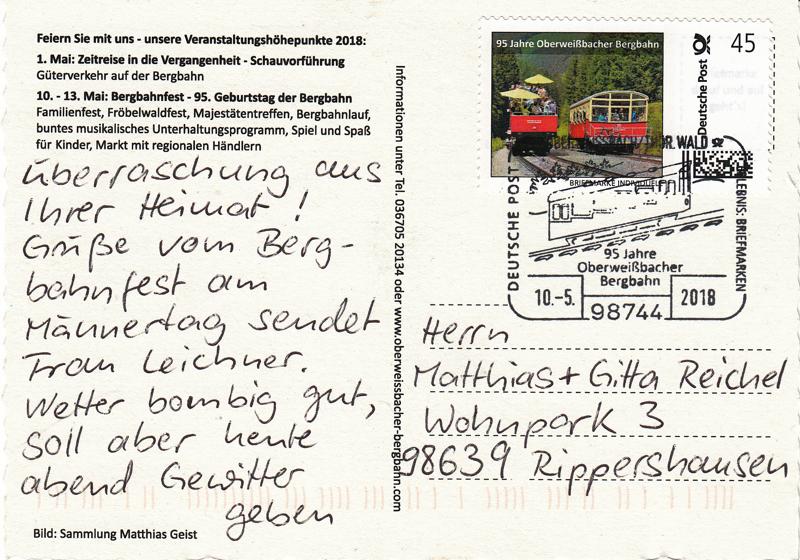 Feiern Sie mit uns - unsere Veranstaltungshöhepunkte 2018:
1. Mai: Zeitreise in die Vergangenheit - Schauvorführung
Güterverkehr auf der Bergbahn
10. - 13. Mai: Bergbahnfest - 95. Geburtstag der Bergbahn
Familienfest, Fröbelwaldfest, Majestätentreffen, Bergbahnlauf,
buntes musikalisches Unterhaltungsprogramm, Spiel und Spaß
für Kinder, Markt mit regionalen Händlern
Überraschung aus
Ihrer Heimat!
Grüße vom Berg-
bahnfest am
Männertag sendet
Frau Leichner.
Wetter bombig gut,
soll aber heute
abend Gewitter
geben
Bild: Sammlung Matthias Geist
Informationen unter Tel. 036705 20134 oder www.oberweissbacher-bergbahn.com
95 Jahre Oberweißbacher Bergbahn
Deutsche Post
45
BRIEFMARKE INDIVIDUELL
WALD
DEUTSCHE POST
ERLEBNIS: BRIEFMARKEN
95 Jahre
Oberweißbacher
Bergbahn
10.-5. 2018
98744
Herrn
Matthias + Gitta Reichel
Wohnpark 3
98639 Rippershausen